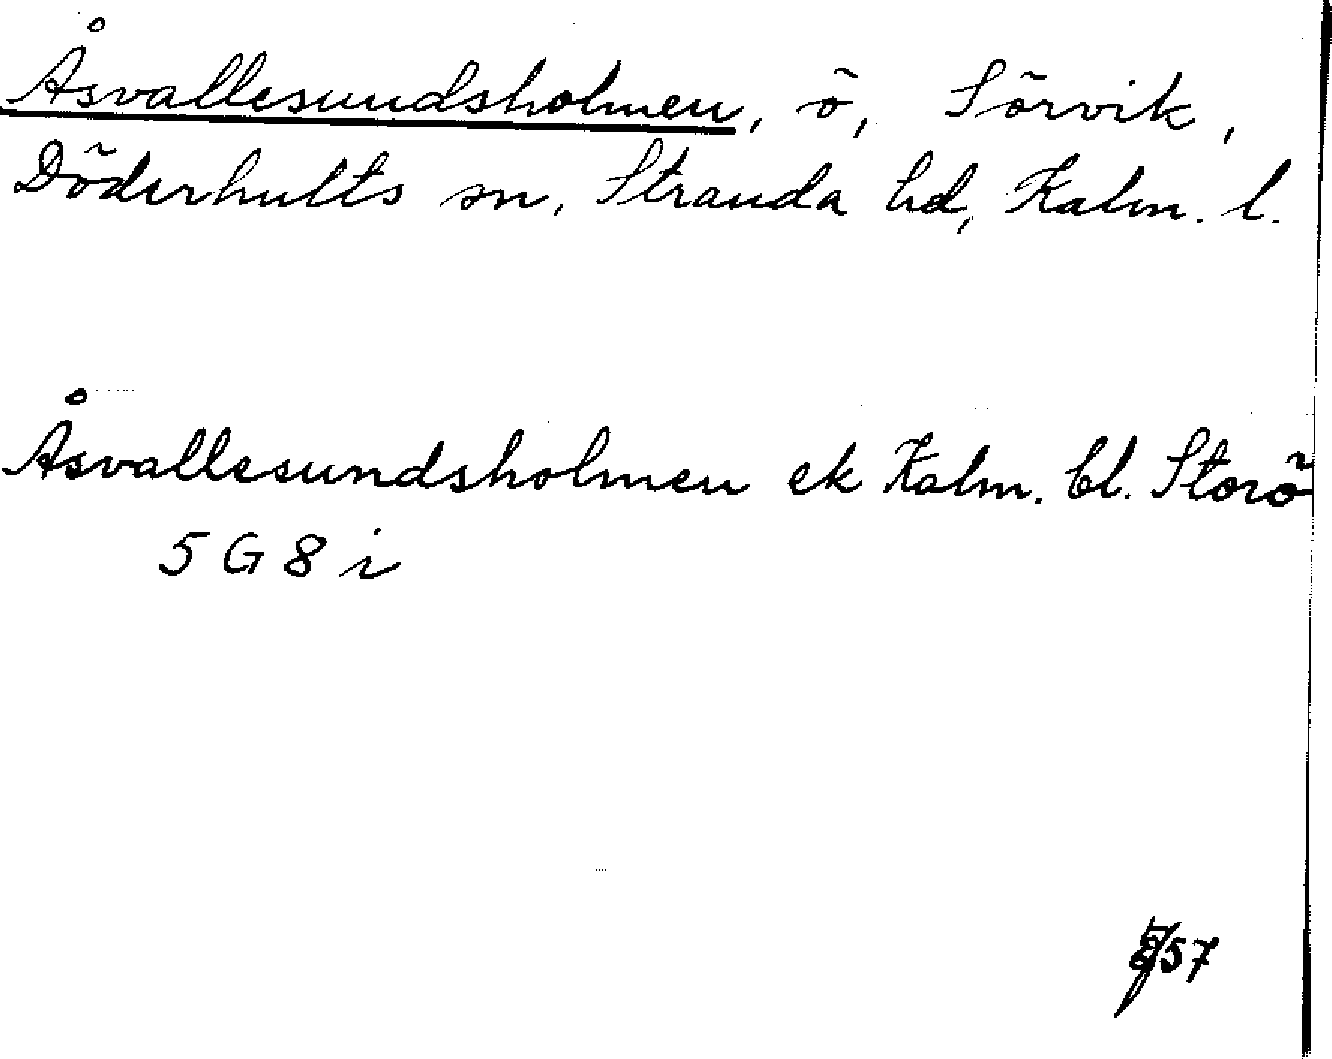 Åsvallesundsholmen, ö, Sörvik,
Döderhults sn, Stranda hd, Kalm. l.
Åsvallesundsholmen ek Kalm. bl. Storö
5 G 8 i
57